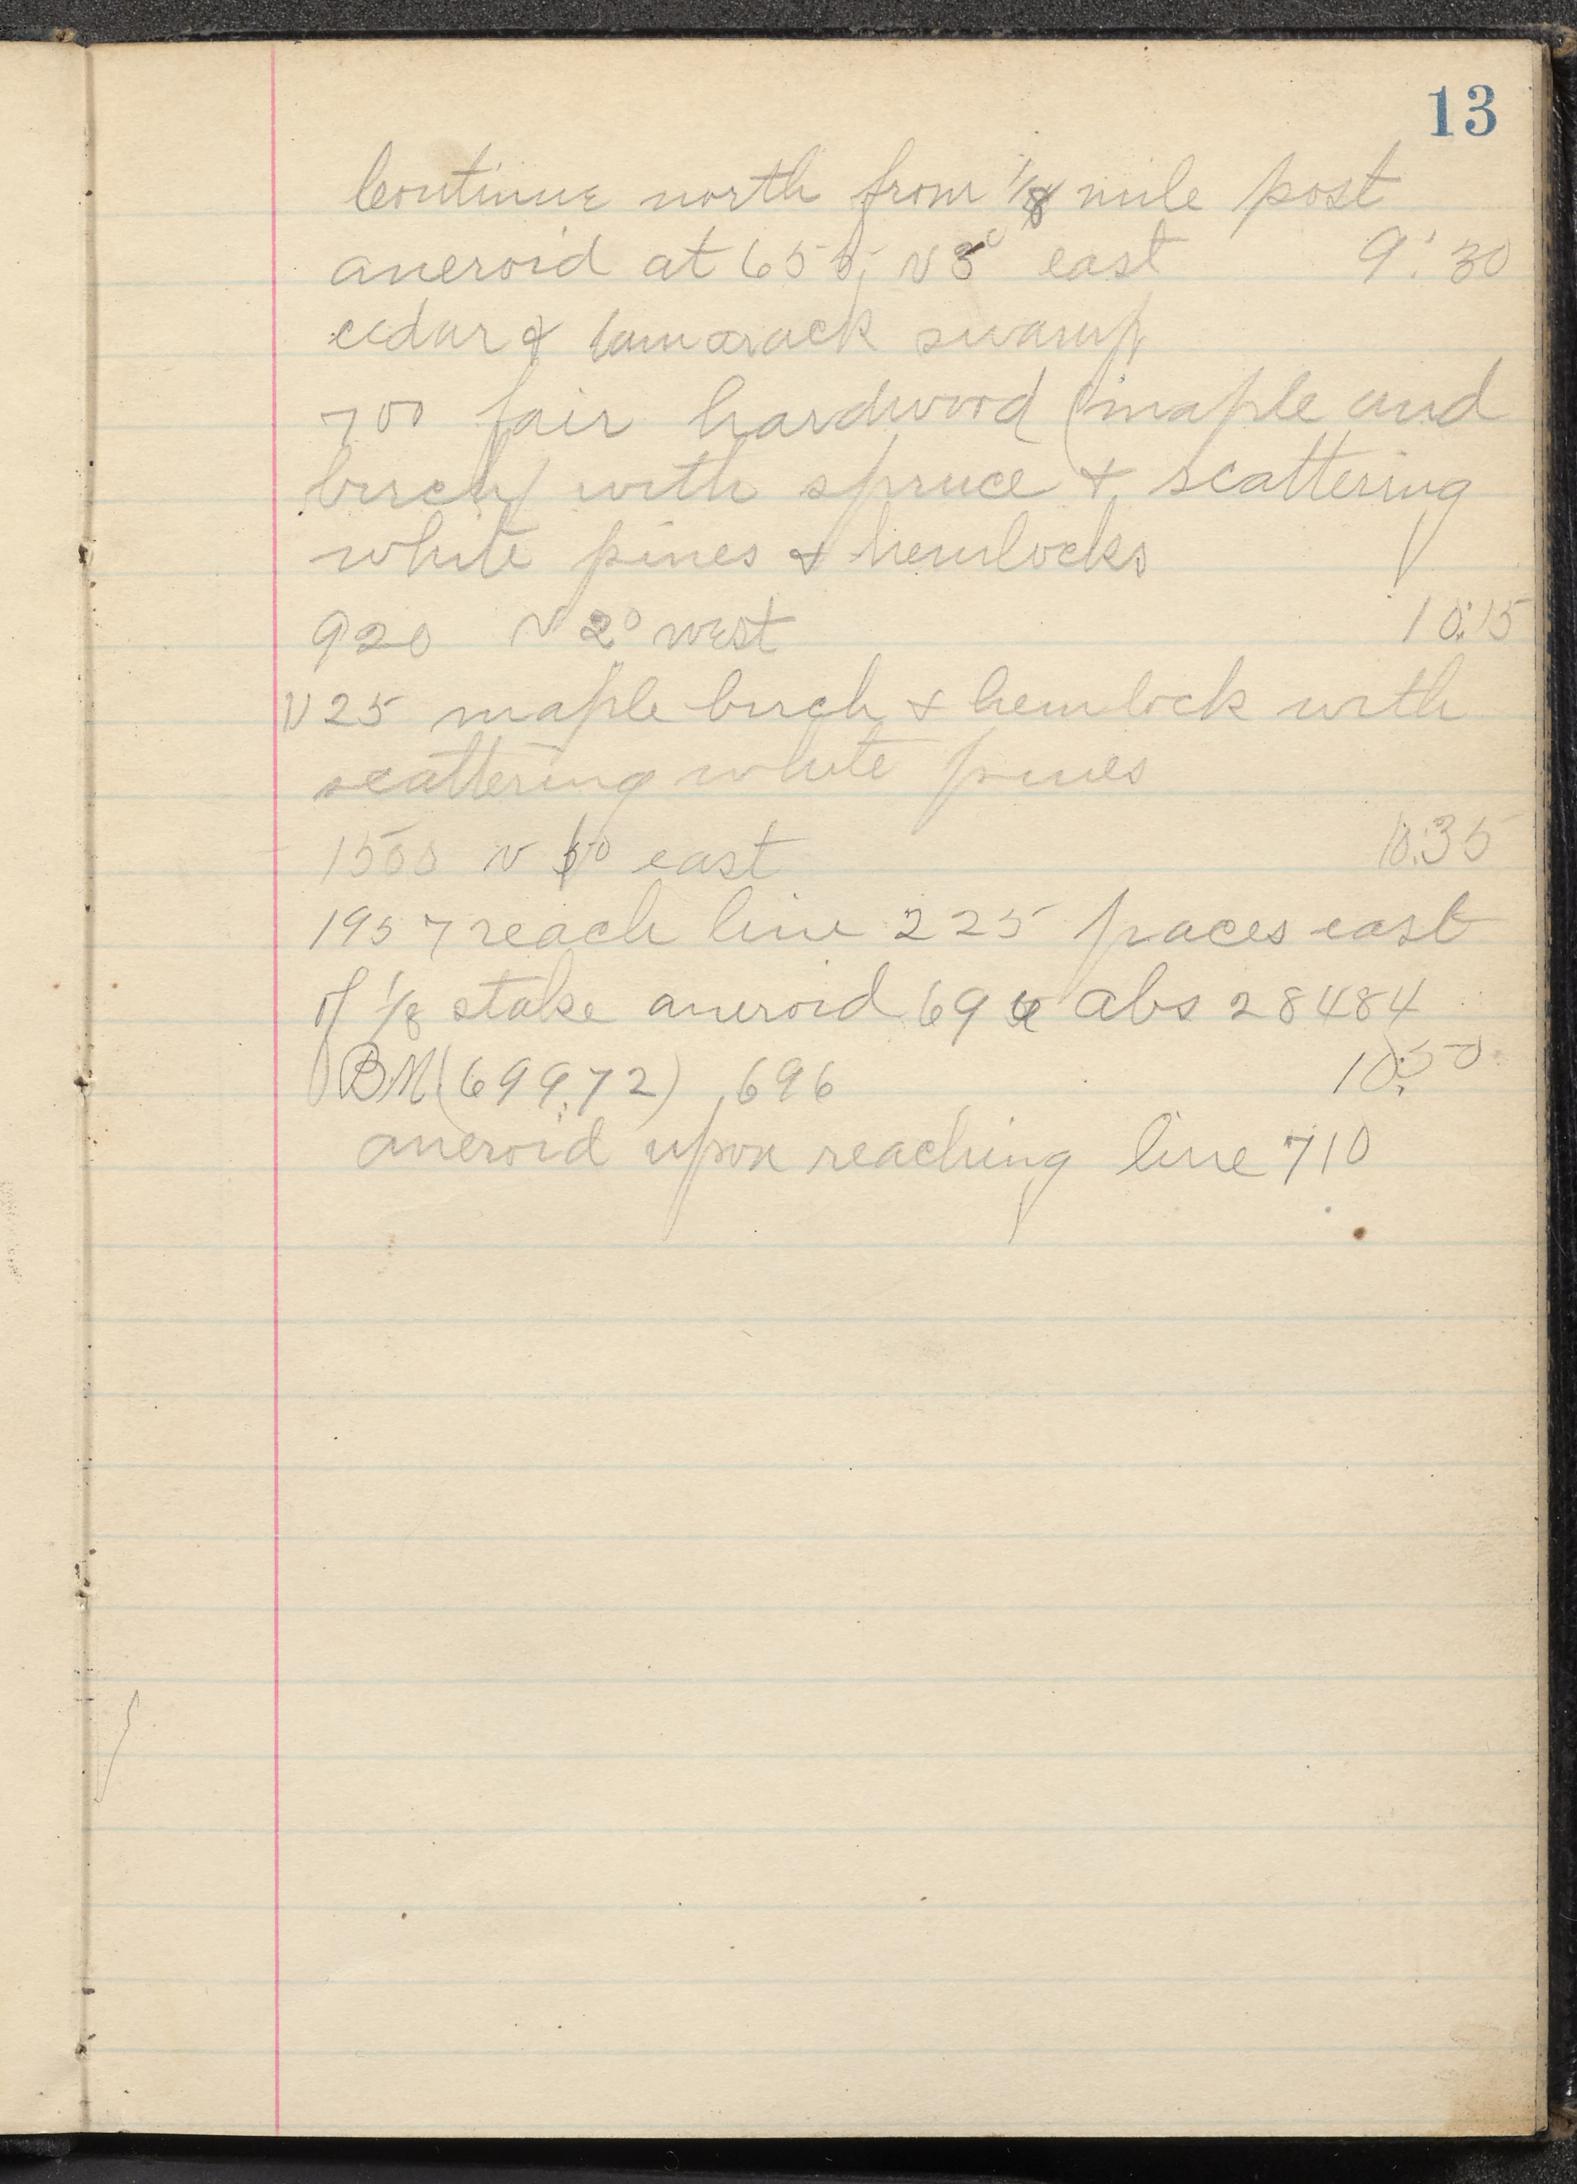 13
Continue north from 1/8 mile post
aneroid at 655, N 3° east 9:30
cedar & tamarack swamp
700 fair hardwood (maple and
birch) with spruce & scattering
white pines & hemlocks
920 N 2° west 10:15
25 maple birch & hemlock with
scattering white pines
1500 N east 10:35
1957 reach line 225 paces east
of 1/8 stake aneroid 696 abs 28484
BM (699.72) 696 10:50
aneroid upon reaching line 710